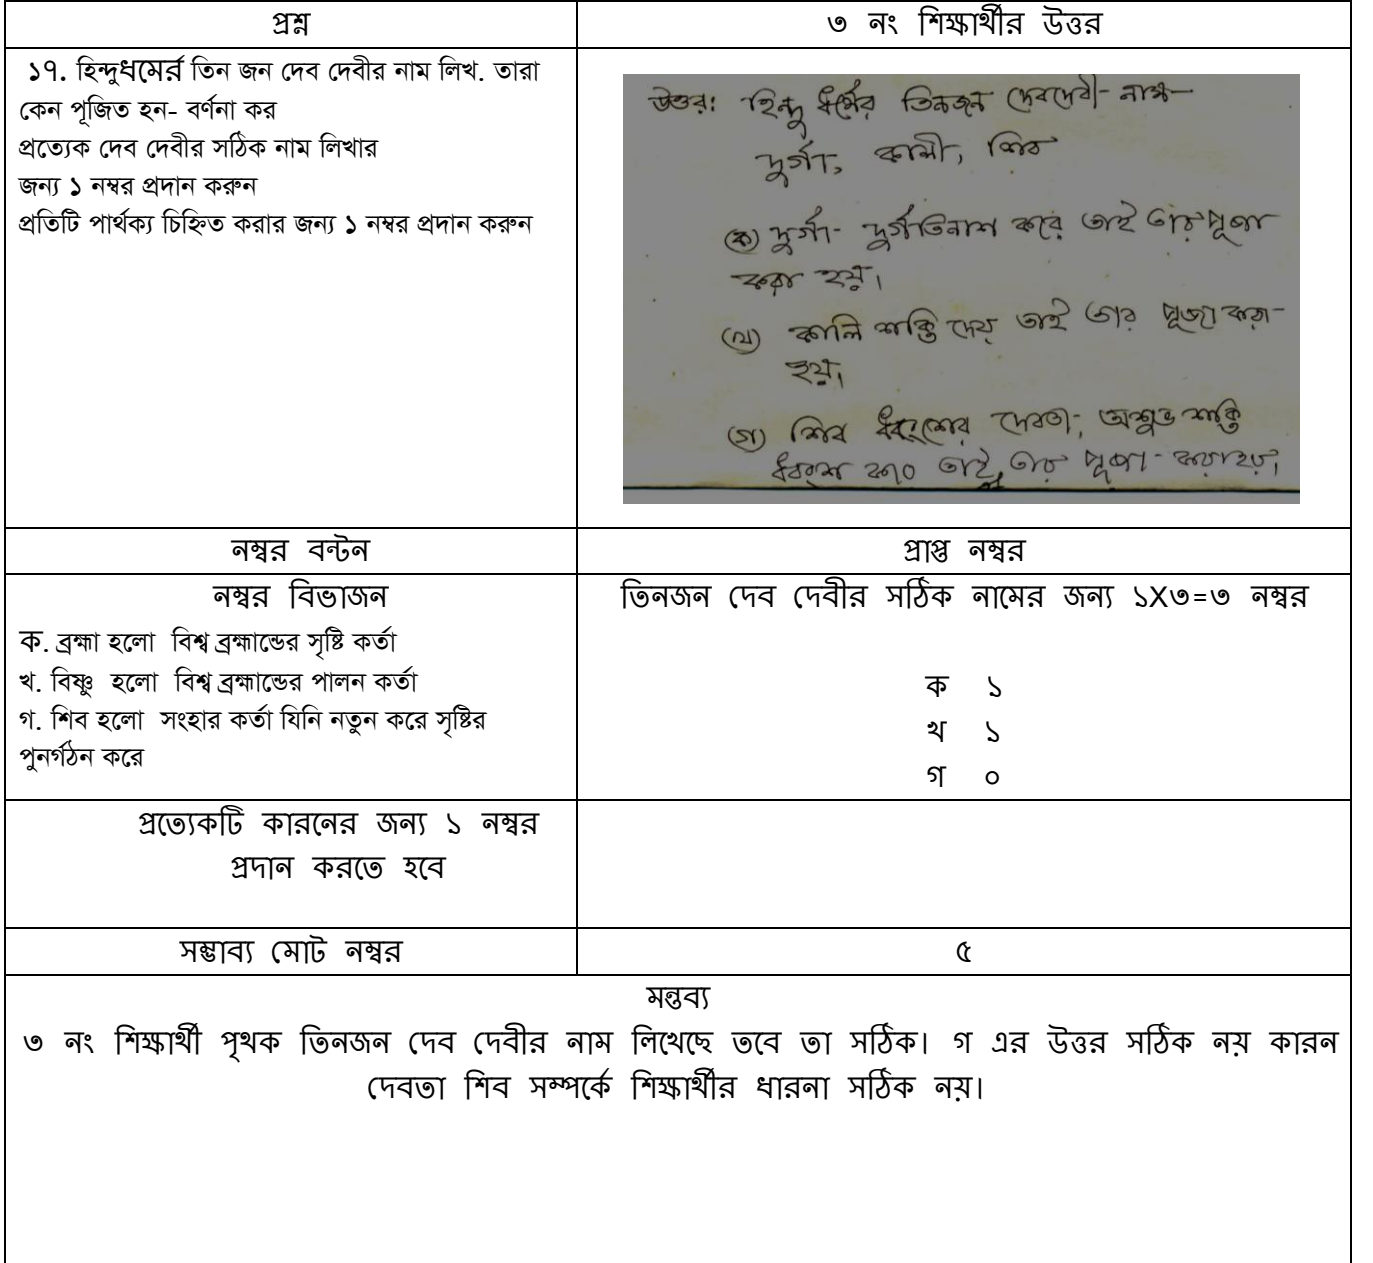 প্রশ্ন
৩ নং শিক্ষার্থীর উত্তর
১৭. হিন্দুধমের্র তিন জন দেব দেবীর নাম লিখ. তারা
কেন পূজিত হন- বর্ণনা কর
প্রত্যেক দেব দেবীর সঠিক নাম লিখার
জন্য ১ নম্বর প্রদান করুন
প্রতিটি পার্থক্য চিহ্নিত করার জন্য ১ নম্বর প্রদান করুন
উত্তর: হিন্দু ধর্মের তিনজন দেবদেবী- নাম-
দুর্গা, কালী, শিব
(ক) দুর্গা- দুর্গতিনাশ করে তাই তার পূজা
করা হয়।
(খ) কালি শক্তি দেয় তাই তার পূজা করা-
হয়।
(গ) শিব ধবংশের দেবতা; অশুভ শক্তি
ধবংশ করে তাই তার পূজা- করাহয়।
নম্বর বন্টন
প্রাপ্ত নম্বর
নম্বর বিভাজন
ক. ব্রহ্মা হলো বিশ্ব ব্রহ্মান্ডের সৃষ্টি কর্তা
খ. বিষ্ণু হলো বিশ্ব ব্রহ্মান্ডের পালন কর্তা
গ. শিব হলো সংহার কর্তা যিনি নতুন করে সৃষ্টির
পুনর্গঠন করে
তিনজন দেব দেবীর সঠিক নামের জন্য ১X৩=৩ নম্বর
ক ১
খ ১
গ ০
প্রত্যেকটি কারনের জন্য ১ নম্বর
প্রদান করতে হবে
সম্ভাব্য মোট নম্বর
৫
মন্তব্য
৩ নং শিক্ষার্থী পৃথক তিনজন দেব দেবীর নাম লিখেছে তবে তা সঠিক। গ এর উত্তর সঠিক নয় কারন
দেবতা শিব সম্পর্কে শিক্ষার্থীর ধারনা সঠিক নয়।